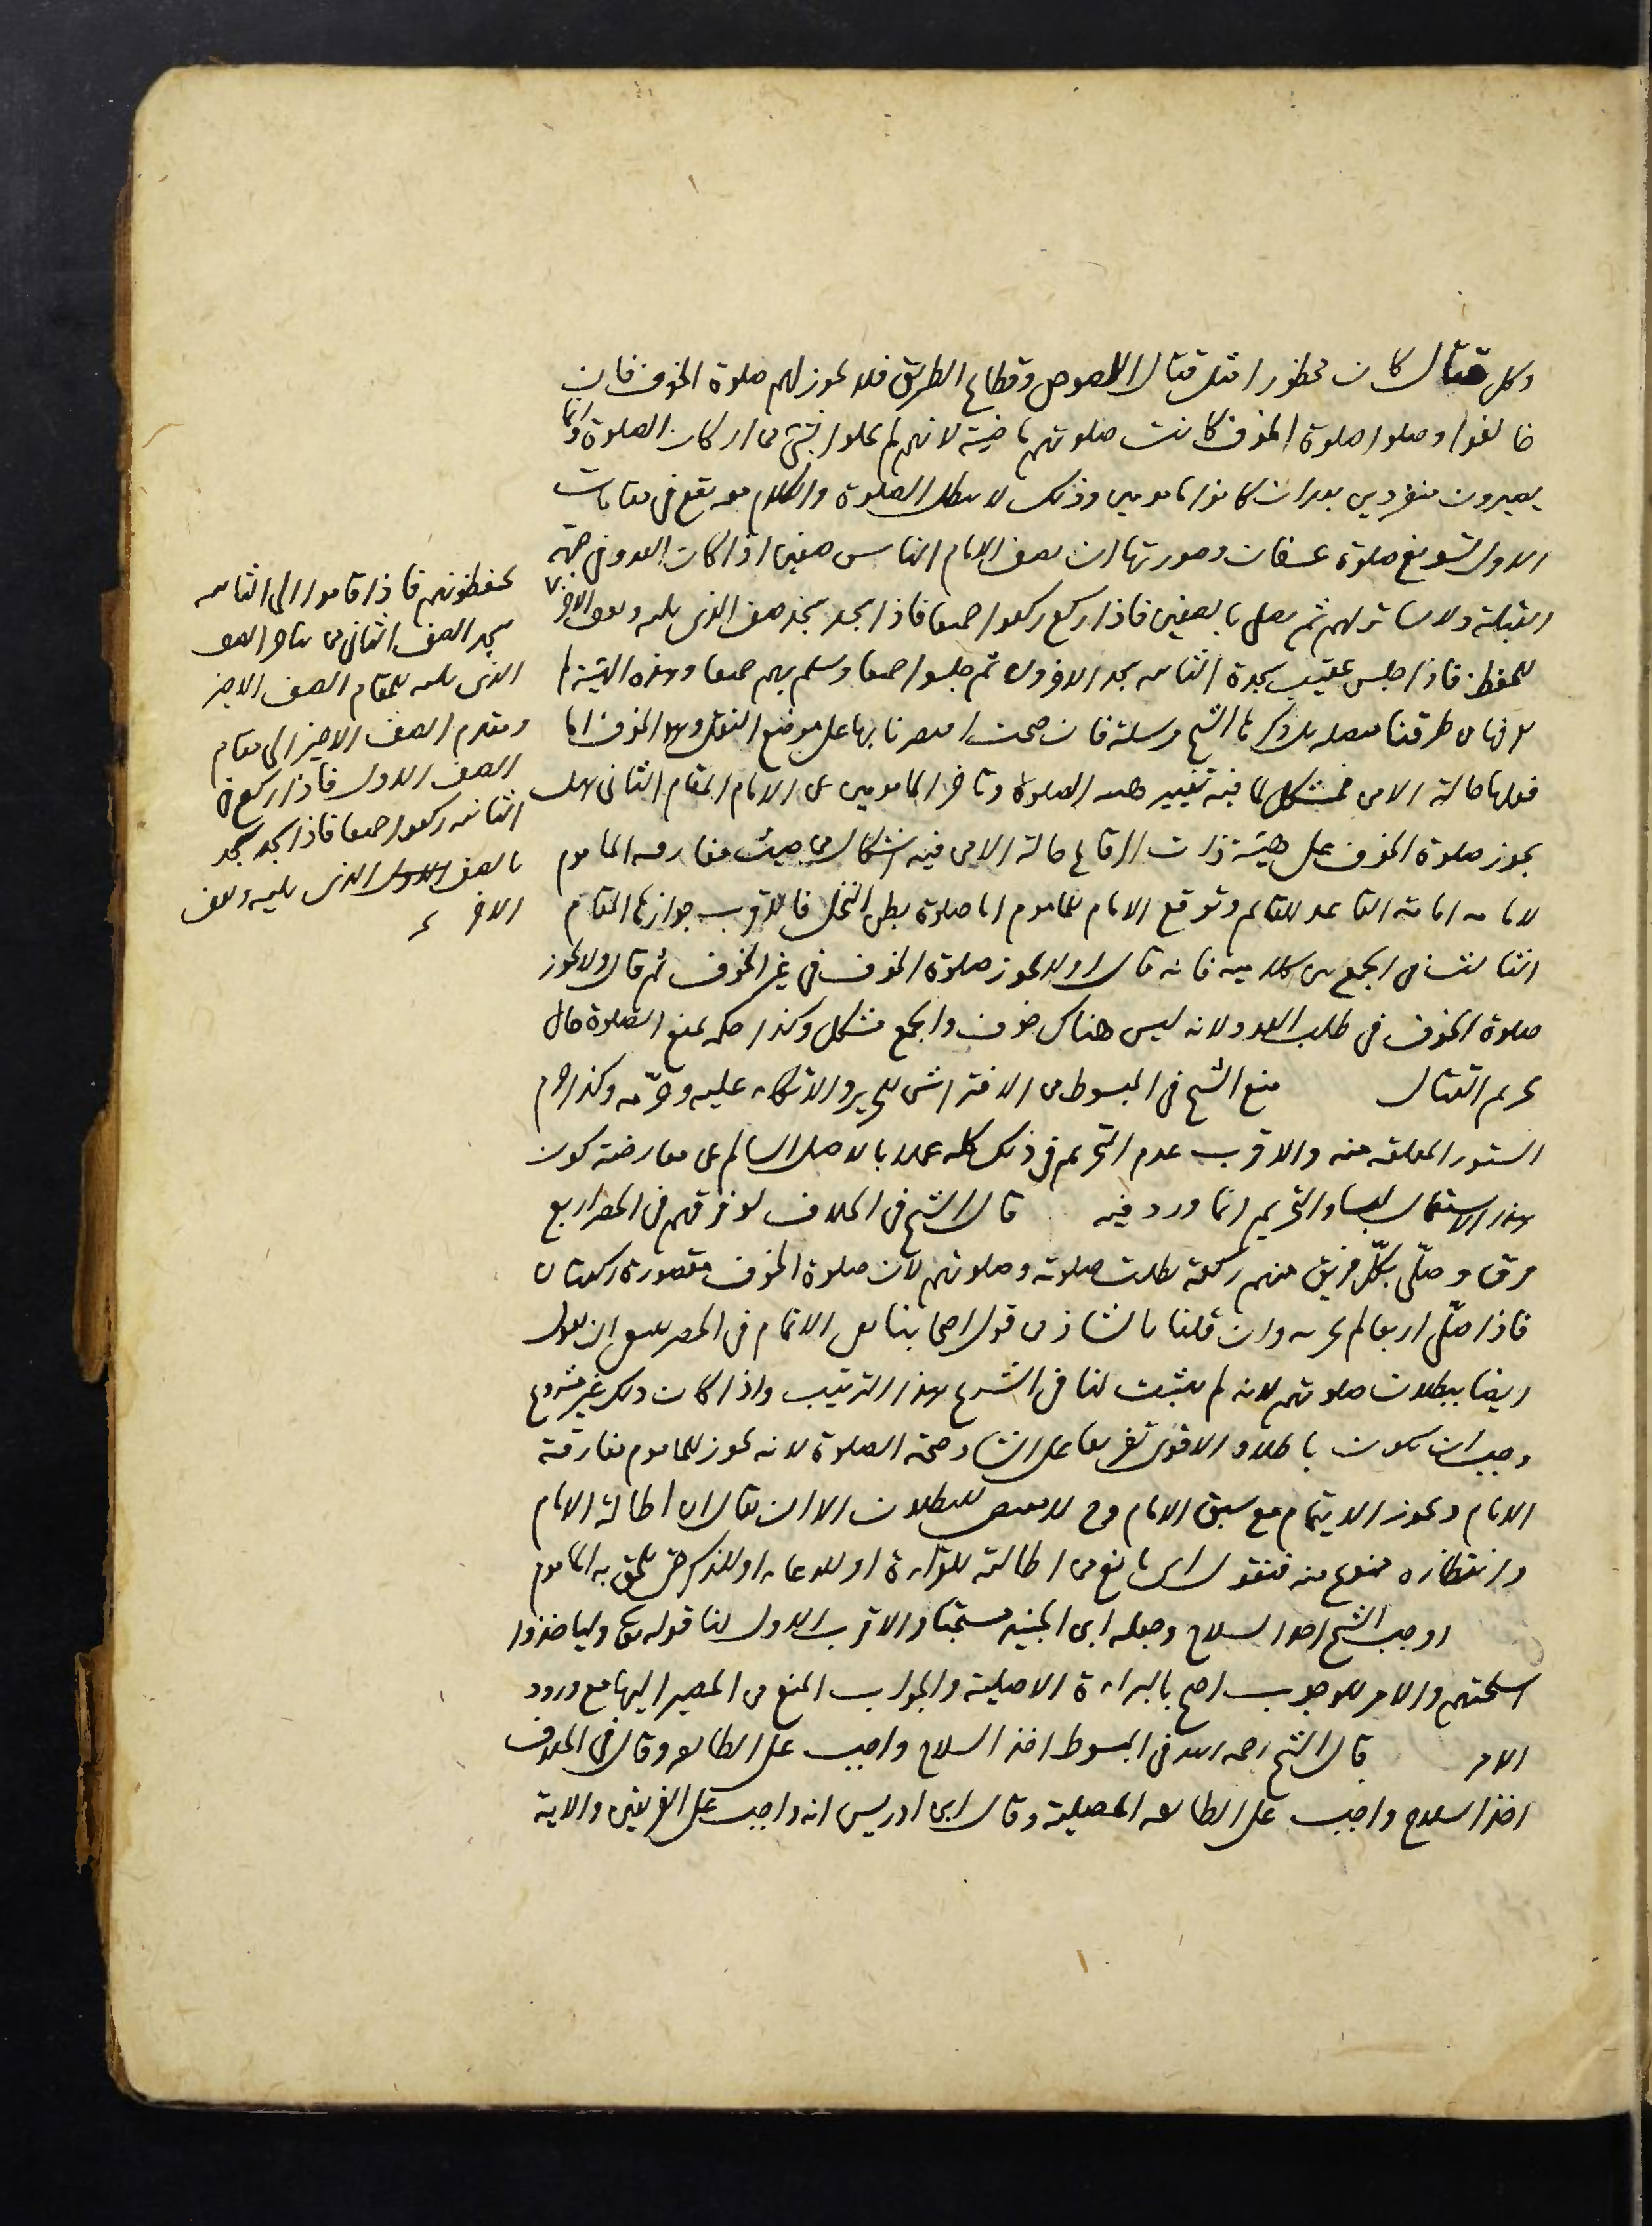 وكل قتال كان محظورا مثل قتال اللصوص وقطاع الطريق فلا يجوز لهم صلوة الخوف فان
خالفوا وصلوا صلوة الخوف كانت صلوتهم ماضية لانهم لم يخلوا بشئ من اركان الصلوة وانما
يصيرون منفردين بعد ان كانوا مامومين وذلك لا يبطل الصلوة والكلام معه يقع فى مقامات
الاول تسويغ صلوة عسفان وصورتها ان يصف الامام الناس صفين اذا كان العدو فى جهة
القبلة ولا ساتر لهم ثم يصلى بالصفين فاذا ركع ركعوا جميعا فاذا سجد سجد صف الذى يليه ويقف الاخر
للحفظ فاذا جلس عقيب سجدة الثانيه سجد الاخرون ثم جلسوا جميعا وسلم بهم جميعا وهذه الهيئة لم
نعرفها من طرقنا مفصله بل ذكرها الشيخ مرسلة فان صحت اقتصرنا بها على موضع النقل وهو الخوف اما
فعلها حالة الامن فمشكل لما فيه تغيير هيئة الصلوة وتاخر المامومين عن الامام المقام الثانى هل
يجوز صلوة الخوف على هيئة ذات الرقاع حالة الامن فيه اشكال من حيث مفارقه الماموم
لامامه امامة القاعد للقائم وتوقع الامام للماموم اما صلوة بطن النخل فالاقرب جوازها المقام
الثالث فى الجمع بين كلاميه فانه قال اولا يجوز صلوة الخوف فى غير الخوف ثم قال ولا يجوز
صلوة الخوف فى طلب العدو لانه ليس هناك خوف والجمع مشكل وكذا حكمه بمنع الصلوة حال
تحريم القتال منع الشيخ فى المبسوط من الافتراش للحرير والاتكاء عليه وحرّمه وكذا حرم
الستور المعلقه منه والاقرب عدم التحريم فى ذلك كله عملا بالاصل السالم عن معارضة كون
هذا الاستعمال لبسا والتحريم انما ورد فيه قال الشيخ فى الخلاف لو فرقهم فى الحضر اربع
فرق وصلّى بكلّ فريق منهم ركعة بطلت صلوته وصلوتهم لان صلوة الخوف مقصورة ركعتان
فاذا صلّى اربعا لم يجزه وان قلنا بالشاذ من قول اصحابنا من الاتمام فى الحضر ينبغى ان نقول
ايضا ببطلان صلوتهم لانه لم يثبت لنا فى الشرع هذا الترتيب واذا كان ذلك غير مشروع
وجب ان يكون باطلا والاقوى تفريعا على الشاذ صحة الصلوة لانه يجوز للماموم مفارقة
الامام ويجوز الايتمام مع سبق الامام وح لا مقتضى للبطلان الا ان يقال ان اطالة الامام
وانتظاره ممنوع منه فنقول اى مانع من اطالته للقراءة او للدعاء او للذكر حتى يلحق به الماموم
اوجب الشيخ اخذ السلاح وجعله ابن الجنيد مستحبا والاقرب الاول لنا قوله تعالى ولياخذوا
اسلحتهم والامر للوجوب احتج بالبراءة الاصلية والجواب المنع من المصير اليها مع ورود
الامر قال الشيخ رحمه الله فى المبسوط اخذ السلاح واجب على الطائفه وقال فى الخلاف
اخذ السلاح واجب على الطائفه المصلية وقال ابن ادريس انه واجب على الفريقين والاية
يحفظونهم فاذا قاموا الى الثانيه
سجد الصف الثانى ثم يتاخر الصف
الذى يليه للمقام الصف الاخير
ويتقدم الصف الاخير الى مقام
الصف الاول فاذا ركع فى
الثانيه ركعوا جميعا فاذا سجد سجد
بالصف الاول الذى يليه ويقف
الاخر